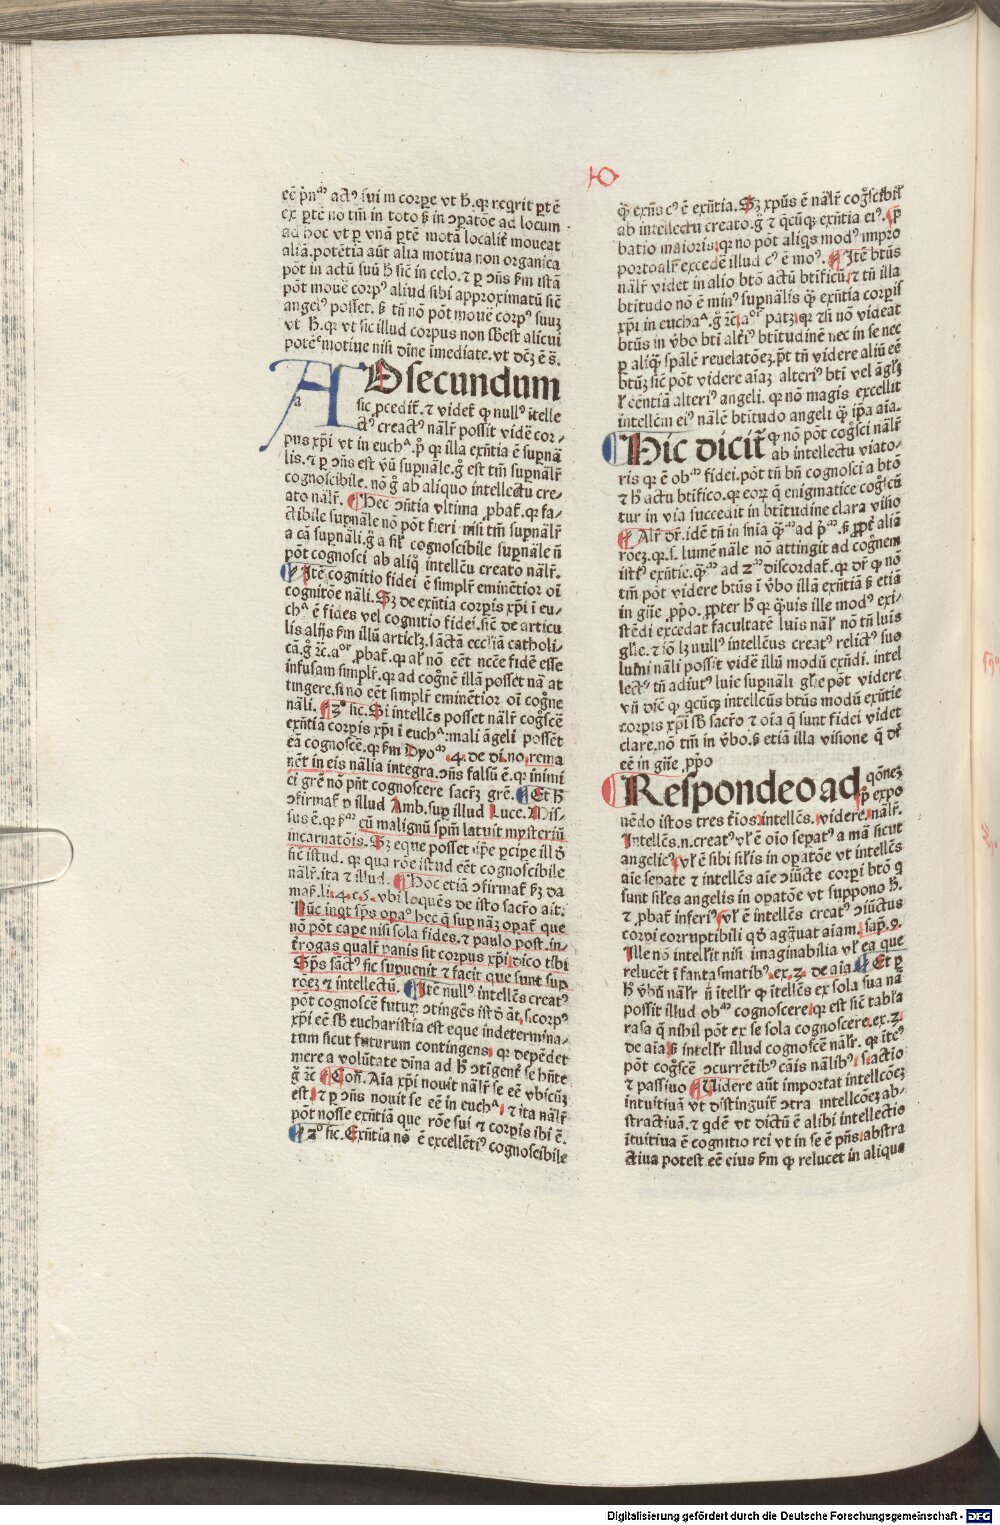 10
eē p̄nᵃᵐ actꝰ sui in corpe vt h̄. qꝛ reqrit p̱tē
ex p̱te no tm̄ in toto ß in ɔparatōe ad locum
ad hoc vt p̱ vnā p̱tē motā localiṫ moueat
aliā. potētia aūt alia motiua non organica
pōt in actū suū h̄ sic̄ in celo. ⁊ p̱ ɔn̄s ẜm istā
pōt mouē corpꝰ aliud sibi approximatū sic̄
angelꝰ posset. ß tn̄ nō pōt mouē corpꝰ suuꝫ
vt h̄. qꝛ vt sic illud corpus non sb̄est alicui
potēᵉ motiue nisi dīne imediate. vt dc̄ꝫ ē s̄.
AD secundum
sic ꝓcediṫ. ⁊ videṫ ꝙ nullꝰ ītelle
ctꝰ creactꝰ nālr̄ possit vidē cor⸗
pus xp̄i vt in euchᵃ. p̄ qꝛ illa exn̄tia ē supnā
lis. ⁊ p̱ ɔn̄s est vn̄ supnāle. gͦ est tm̄ supnālr̄
cognoscibile. nō gͦ ab aliquo intellectu cre⸗
ato nālr̄. Hec ɔn̄tia vltima ꝓbaṫ. qꝛ fa⸗
ctibile supnāle nō pōt fieri nisi tm̄ supnālr̄
a cā supnāli. gͦ a sil̄r cognoscibile supnāle n̄
pōt cognosci ab aliq̄ intellēu creato nālr̄.
Itē cognitio fidei ē simplr̄ eminētior oī
cognitōe nāli. Sꝫ de exn̄tia corpis xp̄i ī eu⸗
chᵃ ē fides vel cognitio fidei. sic̄ de articu
lis alijs ẜm illū articl̄ꝫ. sāctā ecc̄liā catholi⸗
cā. gͦ ꝛc̄. aᵒʳ ꝓbaṫ. qꝛ al̄r nō eēt ncc̄e fidē esse
infusam simplr̄. qꝛ ad cogn̄ē illā posset nā at
tingere. si no eēt simplr̄ eminētior oī cogn̄e
nāli. 3ᵒ sic. Si intellēs posset nālr̄ cogͦscē
exn̄tia corpis xp̄i ī euchᵃ: mali āgeli possēt
eā cognoscē. qꝛ ẜm Dyoᵐ. 4. de di. no. rema
nēt in eis nālia integra. ɔn̄s falsū ē. qꝛ inimi
ci grē nō pn̄t cognoscere sacrꝫ grē. Et h̄
ɔfirmaṫ p̱ illud Amb. sup illud Luce. Mis⸗
sus ē. qꝛ ẜᵐ eū malignū spm̄ latuit mysteriū
incarnatōis. Sꝫ eque posset ip̄e p̱cipe ill ō
sic istud. qꝛ qua rōe istud eēt cognoscibile
nālr̄. ita ⁊ illud. Hoc etiā ɔfirmaṫ p̱ꝫ da
maß. li. 4. c. 5. vbi loquēs de isto sacr̄o ait.
Nūc inqt sp̄s opaᵒ hec q̄ sup nāꝫ opaṫ que
nō pōt cape nisi sola fides. ⁊ paulo post. in⸗
ṫrogas qualr̄ panis sit corpus xp̄i. dico tibi
Sp̄s sāctꝰ sic supuenit ⁊ facit que sunt sup
rōeꝫ ⁊ intellectū. Itē nullꝰ intellēs creatꝰ
pōt cognoscē futuꝝ ɔtingēs istō āt. s. corpꝰ
xp̄i eē sb̄ eucharistia est eque indetermina⸗
tum sicut futurum contingens. qꝛ depēdet
mere a volūtate dīna ad h̄ ɔtīgent̄ se hn̄te
gͦ ꝛc̄ Con̄. Aīa xp̄i nouit nālr̄ se eē vbicūꝫ
est. ⁊ p̱ ɔn̄s nouit se eē in euchᵃ. ⁊ ita nālr̄
pōt nosse exn̄tiā que rōe sui ⁊ corpis ibi ē.
2ᵒ sic. Exn̄tia nō ē excellētiꝰ cognoscibile
q̄ exn̄s cꝰ ē exn̄tia. Sꝫ xpūs ē nālr̄ cogͦscibil̄
ab intellectu creato. gͦ ⁊ q̄cūqꝫ exn̄tia eiꝰ. p̄
batio maioris: qꝛ nō pōt aliqs modꝰ impro
portoalr̄ excedē illud cꝰ ē moꝰ. Itē btūs
nālr̄ videt in alio btō actū btificū. ⁊ tn̄ illa
btitudo nō ē minꝰ supnālis q̄ exn̄tia corpis
xp̄i in euchaᵃ. gͦ ꝛc̄. aᵒʳ patꝫ. qꝛ ⁊si nō videat
btūs in v̄bo bti̇ alt̄iꝰ btitudinē nec in se nec
p̱ aliq̄ sp̄alē reuelatōeꝫ. p̄t tn̄ videre aliū eē
btūꝫ sic̄ pōt videre aīaꝫ alteriꝰ bti̇ vel āgl̄ꝫ
l̄ eēntiā alteriꝰ angeli. qꝛ nō magis excellit
intellēm eiꝰ nālē btitudo angeli q̄ ip̄a aīa.
Hic diciṫ ꝙ nō pōt cogͦsci nālr̄
ab intellectu viato⸗
ris qꝛ ē obᵐ fidei. pōt tn̄ bn̄ cognosci a btō
⁊ h̄ actu btifico. qꝛ eoꝝ q̄ enigmatice cogͦscū
tur in via succedit in btitudine clara visio
Alr̄ dr̄. idē tn̄ in sn̄ia q̄ᵐ ad p̄ᵐ. ß ꝓpṫ aliā
rōeꝫ. qꝛ. s. lumē nāle nō attingit ad cognem
istiꝰ exn̄tie. q̄ᵐ ad 2ᵐ discordaṫ. qꝛ dr̄ ꝙ nō
tm̄ pōt videre btūs ī v̄bo illā exn̄tiā ß etiā
in gn̄e ꝓpo. ꝓpter h̄ qꝛ q̄uis ille modꝰ exi⸗
stēdi excedat facultatē luis nālr̄ nō tn̄ luis
glīe. ⁊ iō lꝫ nullꝰ intellēcus creatꝰ relictꝰ suo
lumi nāli possit vidē illū modū exn̄di. intel
lectꝰ tn̄ adiutꝰ luīe supnāli glīe pōt videre
vn̄ dic̄ē ꝙ qcūqꝫ intellēcus btūs modū exn̄tie
corpis xp̄i sb̄ sacr̄o ⁊ oīa q̄ sunt fidei videt
clare. nō tm̄ in v̄bo. ß etiā illa visione q̄ dr̄
eē in gn̄e ꝓpo
Respondeo ad qōneꝫ
p̄ expo
nēdo istos tres ṫios. intellēs. videre. nālr̄.
Intellēs. n. creatꝰ vl̄ ē oīo sepatꝰ a mā sicut
angelicꝰ. vl̄ ē sibi sil̄is in opatōe vt intellēs
aīe sepate ⁊ intellēs aīe ɔiūcte corpi btō q
sunt sil̄es angelis in opatōe vt suppono h̄.
⁊ ꝓbaṫ inferiꝰ. vl̄ ē intellēs creatꝰ ɔiūctus
corpi corruptibili qō aggͣuat aiam. sap. 9.
Ille nō intelliit nisi imaginabilia vl̄ ea que
relucēt ī fantasmatibꝰ. ex. 2. de aīa Et p̱
h̄ v̄bū nālr̄ n̄ itell̄r ꝙ itellēs ex sola sua nā
possit illud obᵐ cognoscere. qꝛ est sic̄ tabl̄a
rasa q̄ nihil pōt ex se sola cognoscere. ex. 3.
de aīa. ß intell̄r illud cognoscē nālr̄. qꝛ itēᶜ
pōt cogͦscē ɔcurrētibꝰ cāis nālibꝰ. s. actio
⁊ passiuo Videre aūt importat intellcōeꝫ
intuitiuā vt distinguiṫ ɔtra intellcōeꝫ ab⸗
stractiuā. ⁊ qdē vt dictū ē alibi intellectio
ītuitiua ē cognitio rei vt in se ē pn̄s. abstra
ctiua potest eē eius ẜm ꝙ relucet in aliqua
Digitalisierung gefördert durch die Deutsche Forschungsgemeinschaft - DFG